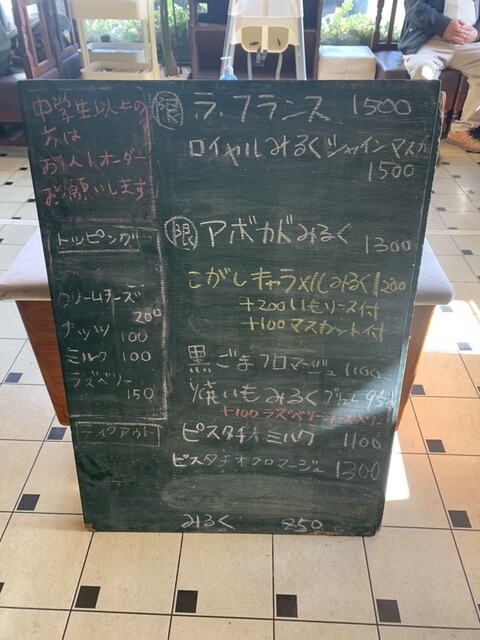 中学生以上の
方は
お1人1オーダー
お願いします
トッピング
クリームチーズ
200
ナッツ 100
ミルク 100
ラズベリー
150
テイクアウト
限 ラ・フランス 1500
ロイヤルみるくシャインマスカ
1500
限 アボカドみるく 1300
こがしキャラメルみるく 1200
+200 いもソース付
+100 マスカット付
黒ごまフロマージュ 1100
焼いもみるく
+100 ラズベリー
ピスタチオミルク 1100
ピスタチオフロマージュ 1300
みるく 850